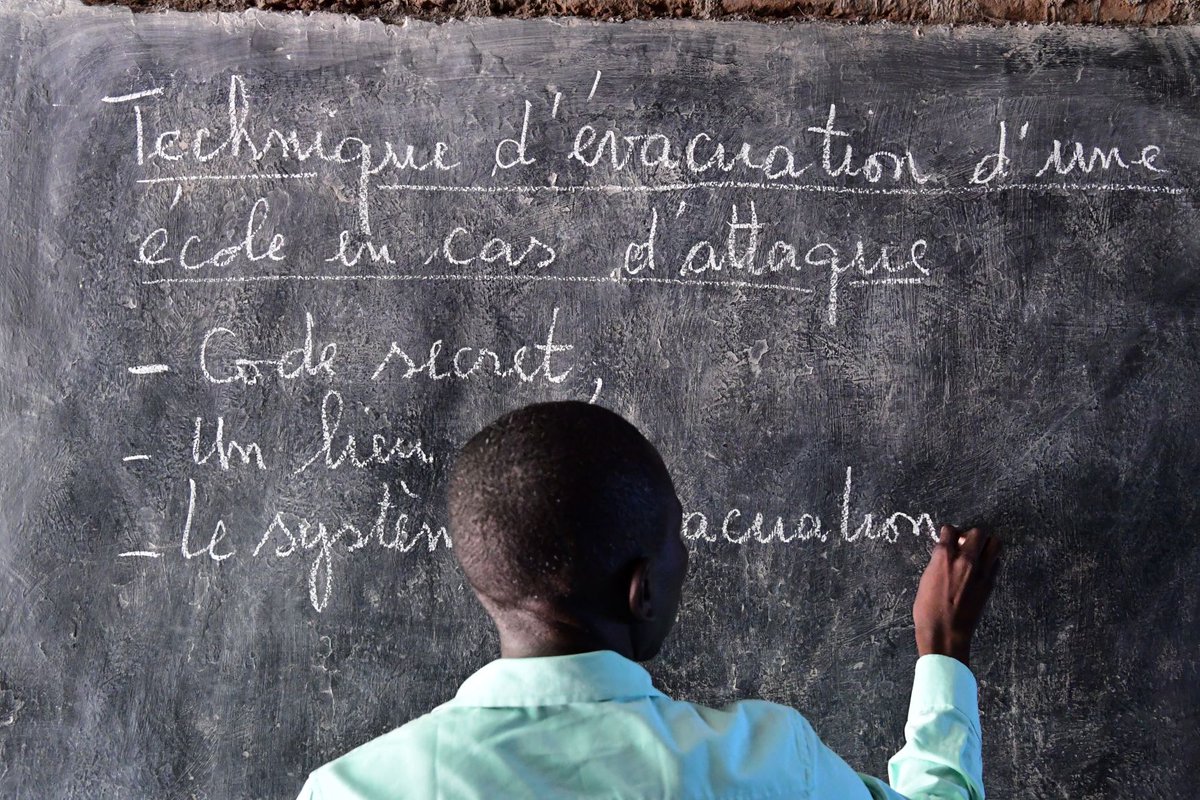 Technique d'évacuation d'une
école en cas d'attaque
- Code secret,
- Un lieu
- Le système acuation